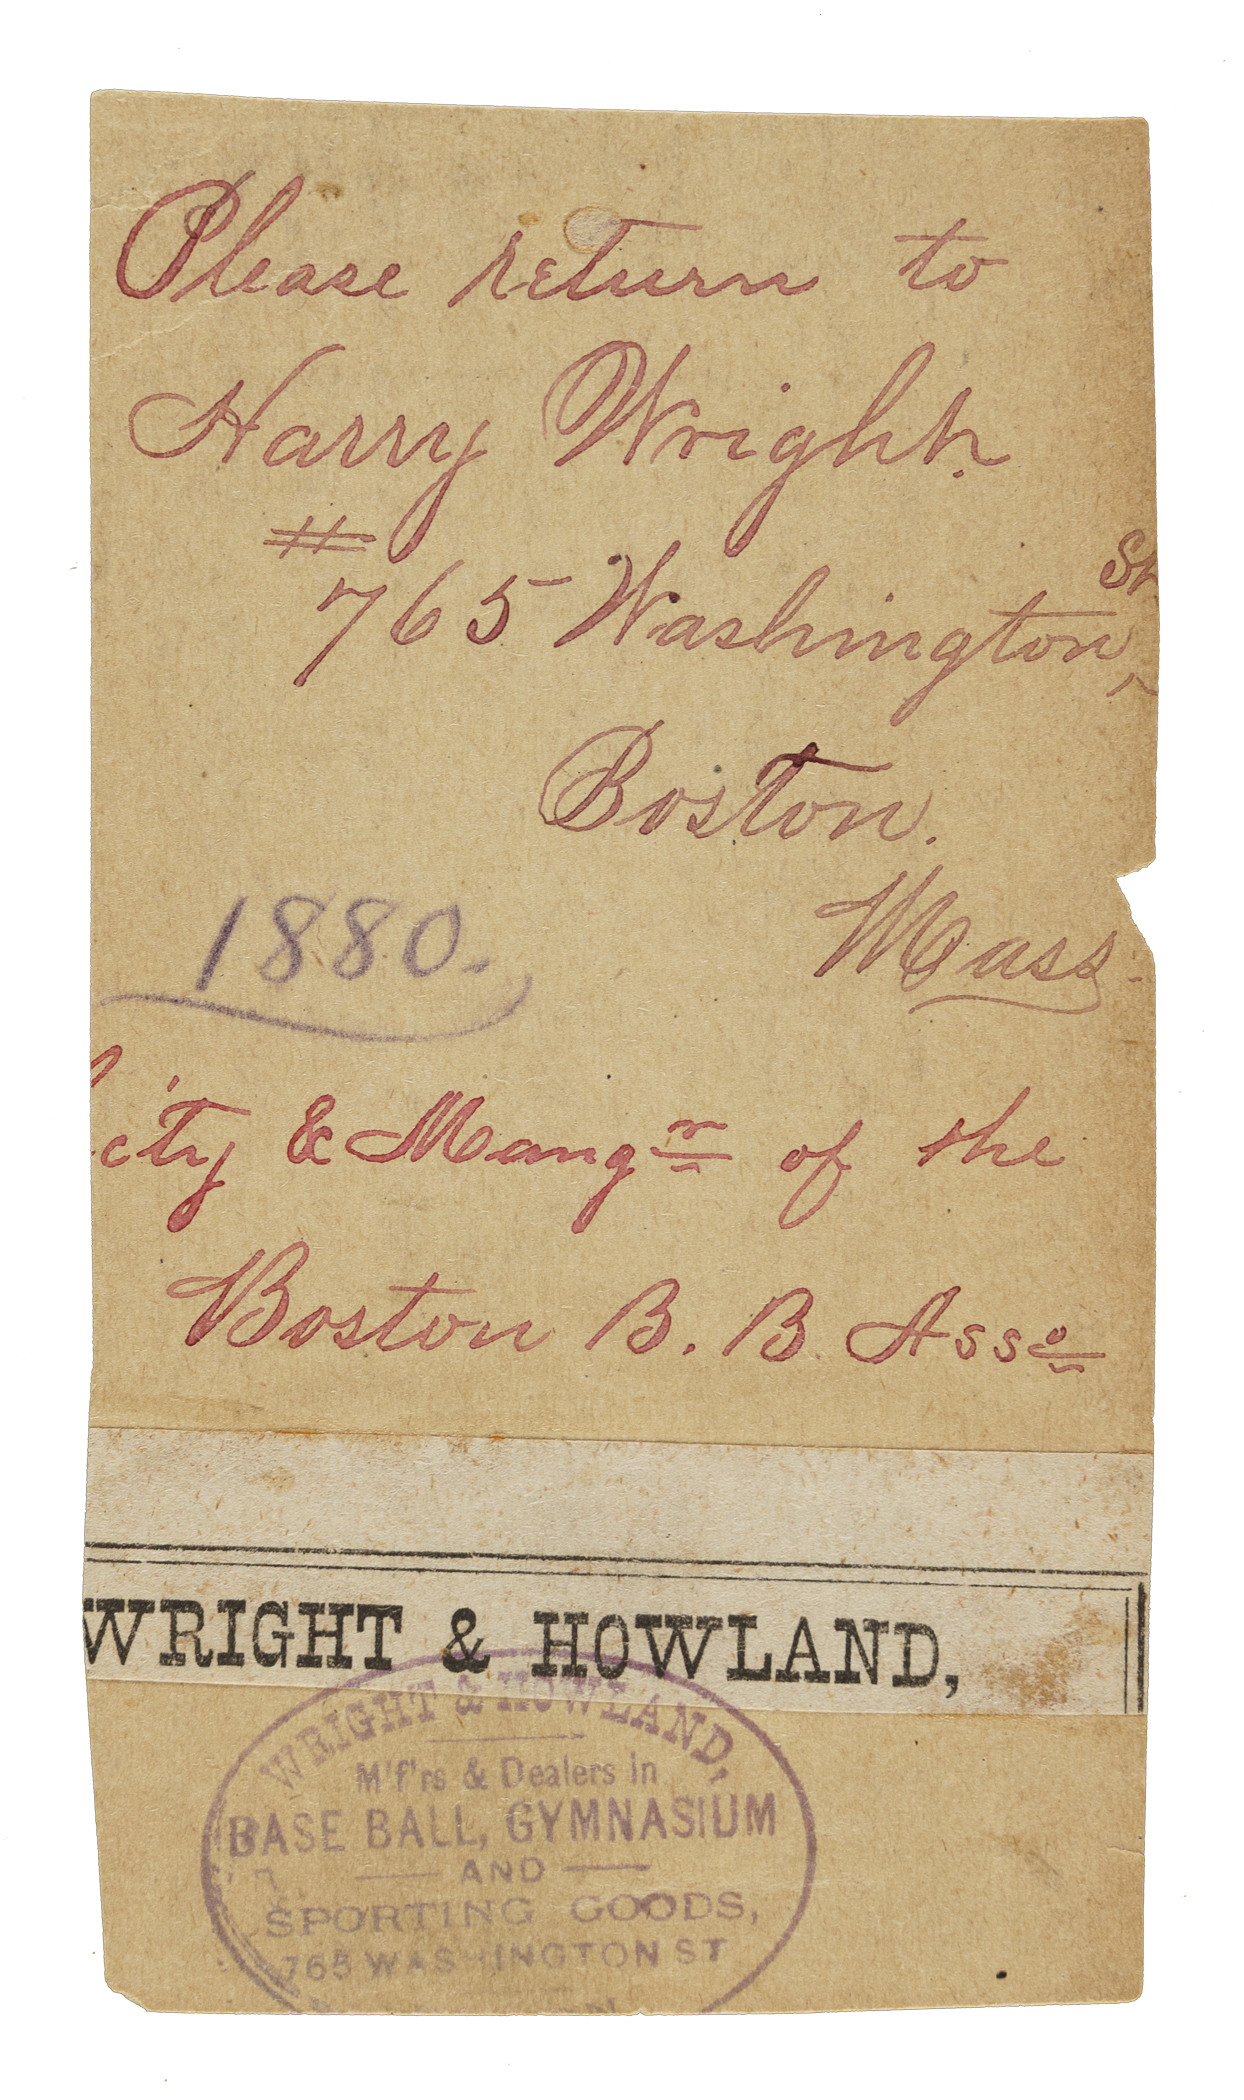 Please return to
Harry Wright.
# 765 Washington St,
Boston.
Mass.
1880.
cty & Mangr of the
Boston B. B. Asso
WRIGHT & HOWLAND,
WRIGHT & HOWLAND,
M'f'rs & Dealers in
BASE BALL, GYMNASIUM
AND
SPORTING GOODS,
765 WASHINGTON ST